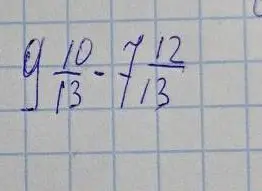 9 10/13 - 7 12/13